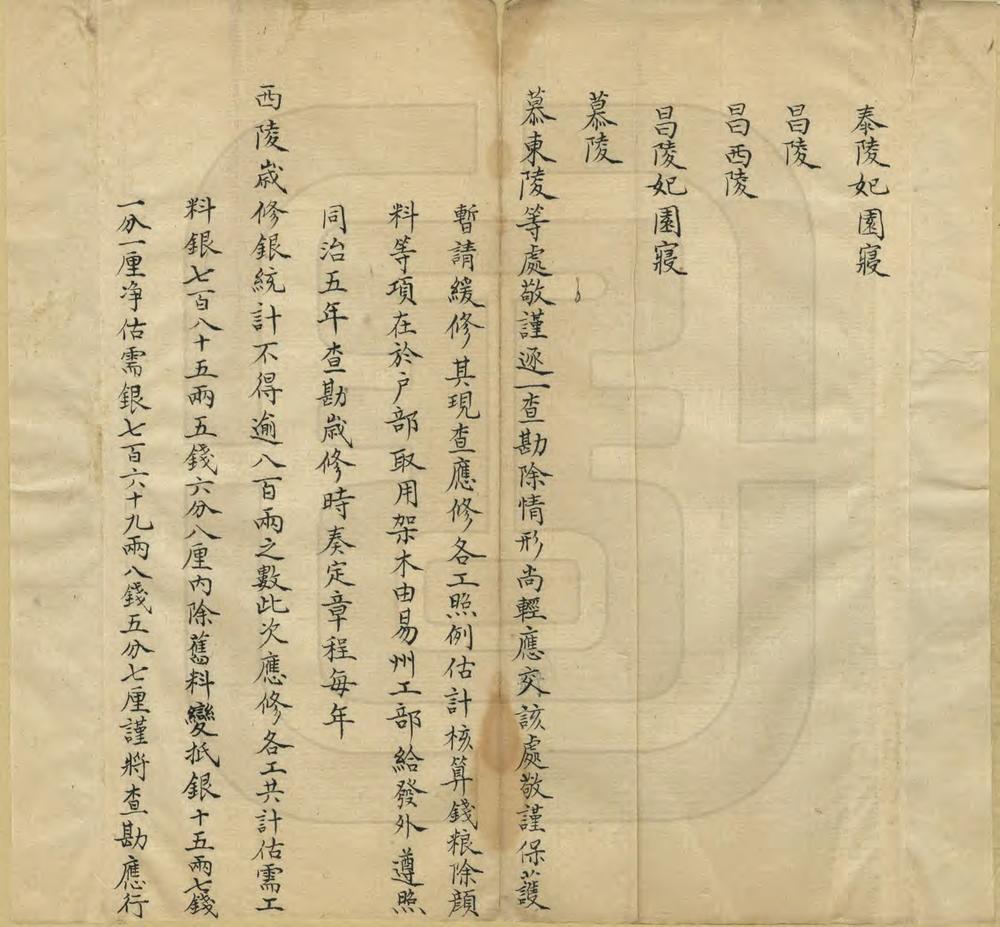 泰陵妃園寢
昌陵
昌西陵
昌陵妃園寢
慕陵
慕東陵等處敬謹逐一查勘除情形尚輕應交該處敬謹保護
暫請緩修其現查應修各工照例估計核算錢粮除顔
料等項在於户部取用架木由易州工部給發外遵照
同治五年查勘歲修時奏定章程每年
西陵歲修銀統計不得逾八百兩之數此次應修各工共計估需工
料銀七百八十五兩五錢六分八厘内除舊料變抵銀十五兩七錢
一分一厘净估需銀七百六十九兩八錢五分七厘謹將查勘應行